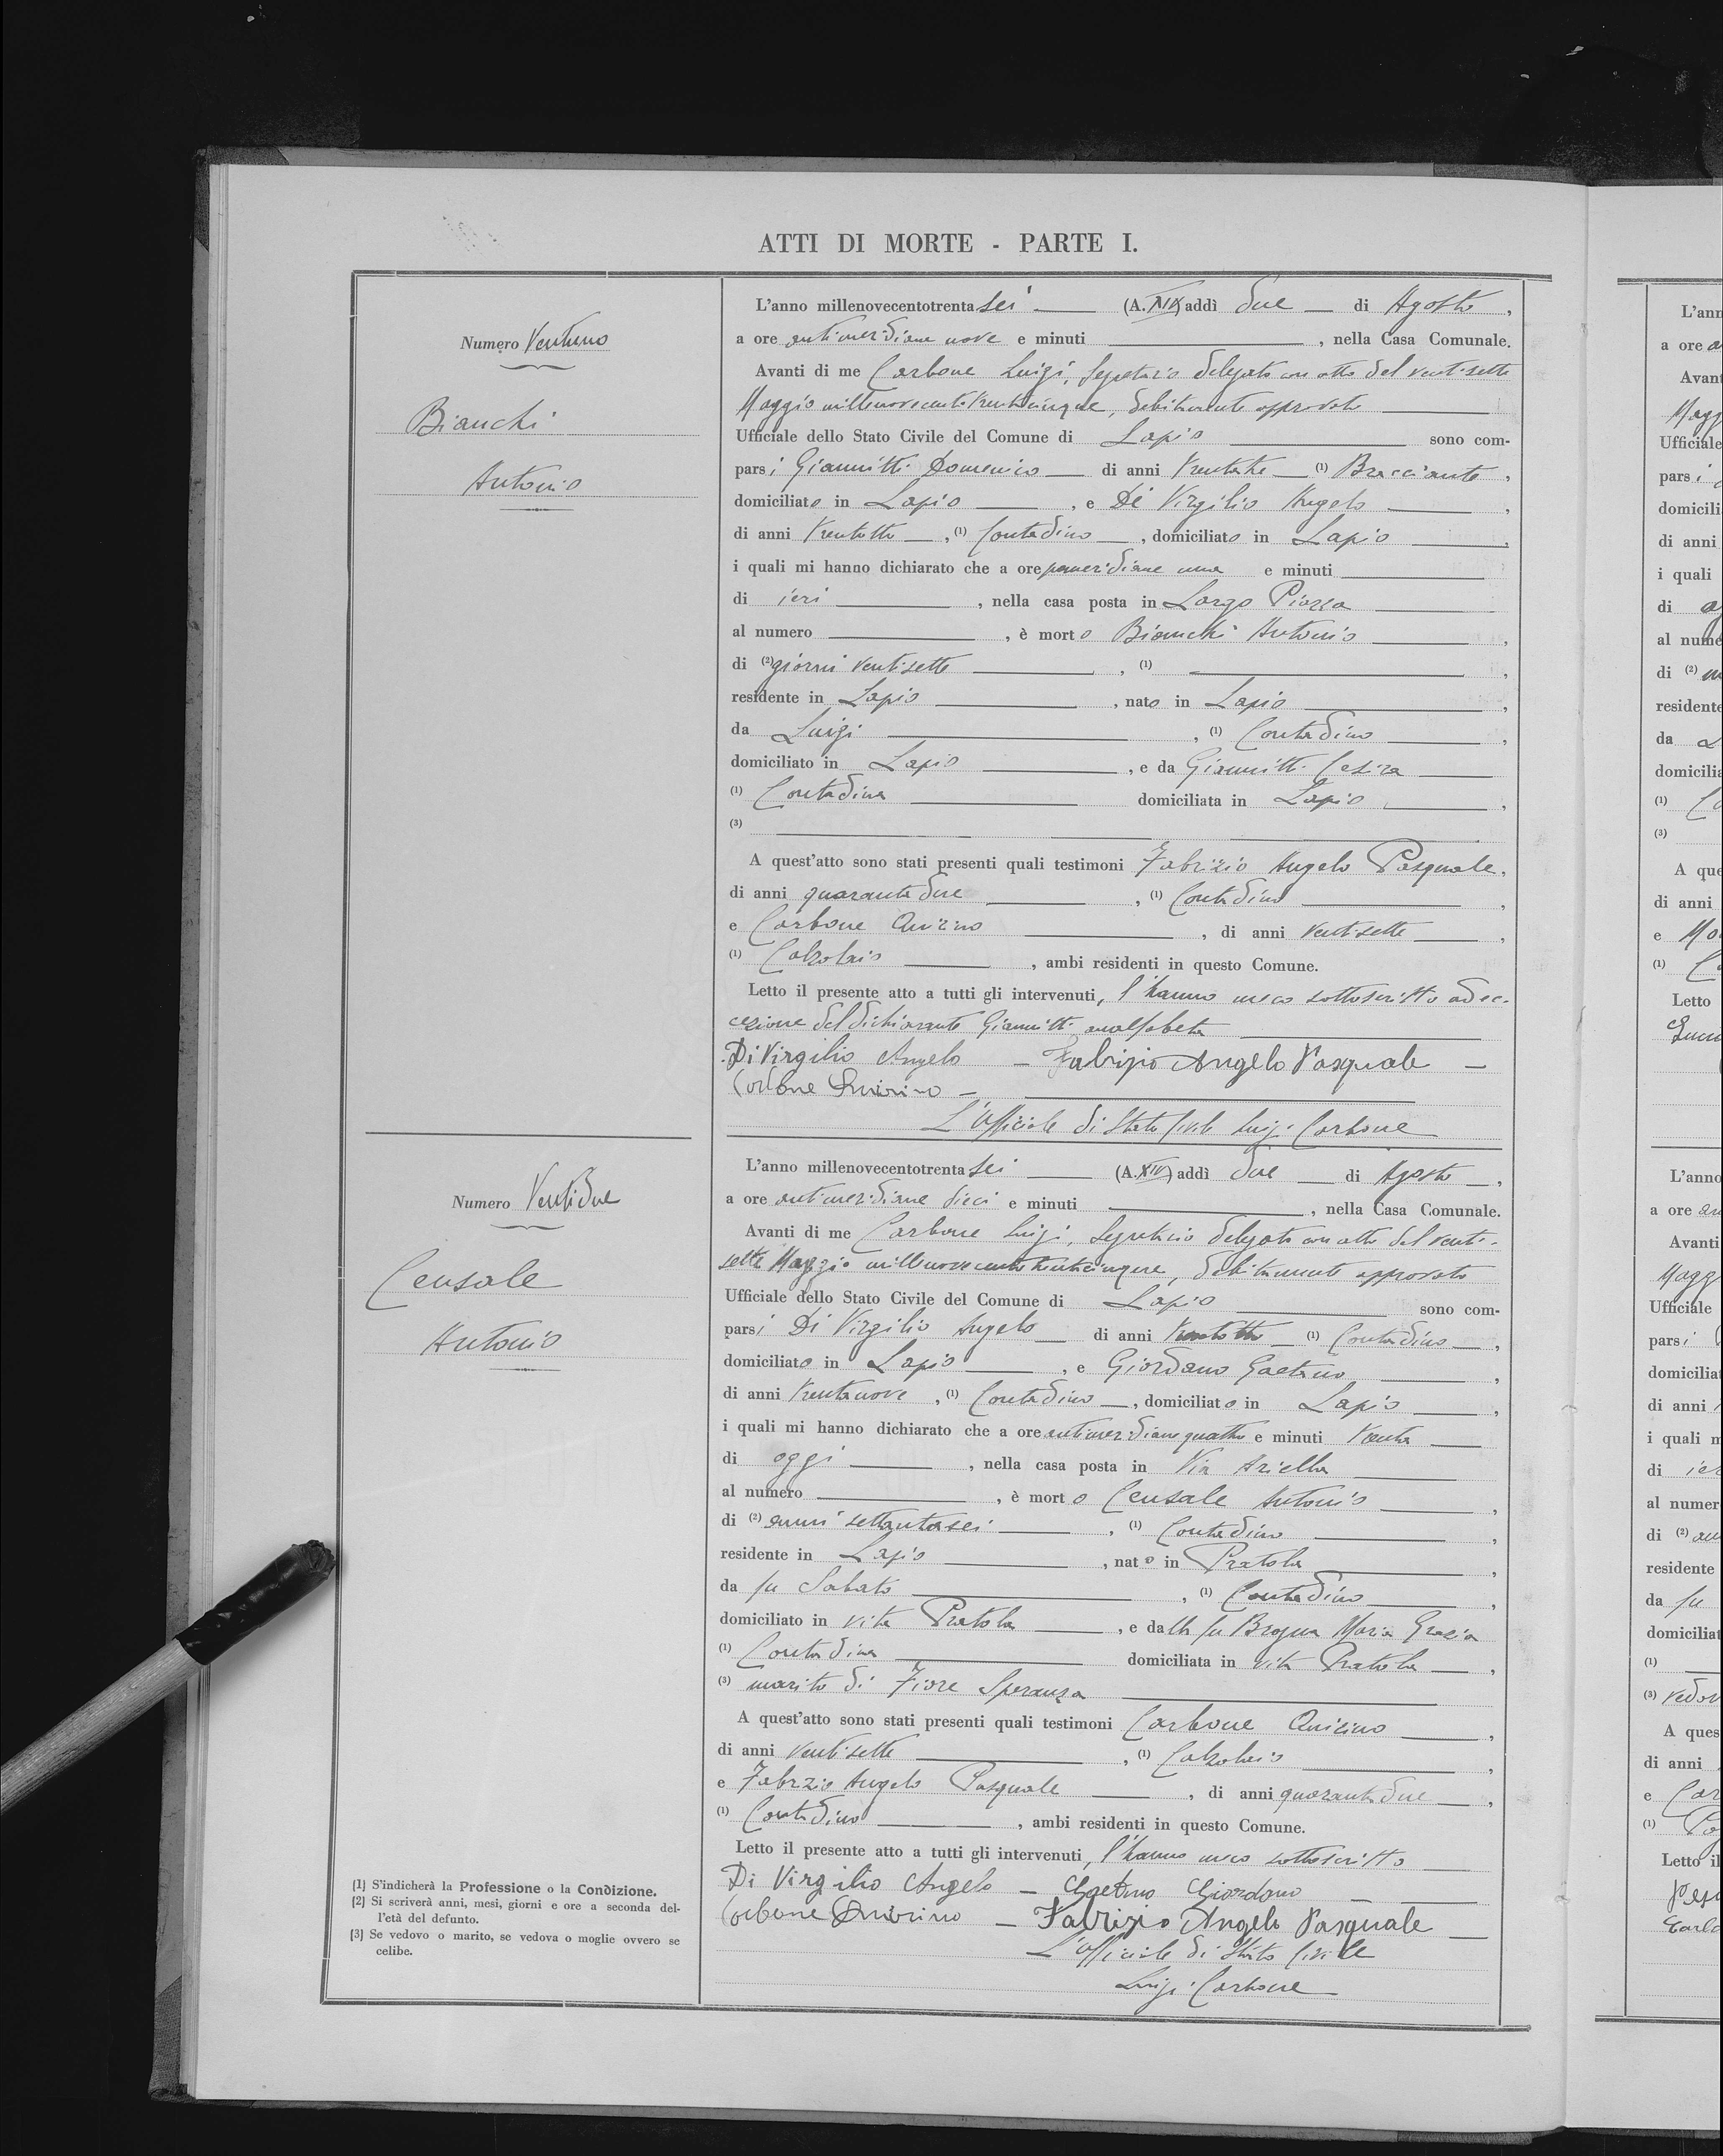 ATTI DI MORTE - PARTE I.
Numero Ventuno
Bianchi
Antonio
L'anno millenovecentotrenta sei (A. XIV) addì due di Agosto,
a ore antimeridiane nove e minuti , nella Casa Comunale.
Avanti di me Carbone Luigi, Segretario delegato con atto del ventisette
Maggio millenovecentotrentacinque, debitamente approvato
Ufficiale dello Stato Civile del Comune di Lapio sono com-
parsi Giannitti Domenico di anni trentatre (1) Bracciante,
domiciliato in Lapio, e Di Virgilio Angelo,
di anni trentotto, (1) Contadino, domiciliato in Lapio
i quali mi hanno dichiarato che a ore pomeridiane una e minuti
di ieri, nella casa posta in Largo Piazza
al numero , è morto Bianchi Antonio,
di (2) giorni ventisette, (1) ,
residente in Lapio, nato in Lapio,
da Luigi, (1) Contadino,
domiciliato in Lapio, e da Giannitti Cesira
(1) Contadina domiciliata in Lapio,
(3)
A quest'atto sono stati presenti quali testimoni Fabrizio Angelo Pasquale,
di anni quarantadue, (1) Contadino,
e Carbone Quirino, di anni ventisette,
(1) Calzolaio, ambi residenti in questo Comune.
Letto il presente atto a tutti gli intervenuti, l'hanno meco sottoscritto ad ec-
cezione del dichiarante Giannitti analfabeta
Di Virgilio Angelo - Fabrizio Angelo Pasquale -
Carbone Quirino -
L'Ufficiale di Stato Civile Luigi Carbone
Numero Ventidue
Censale
Antonio
L'anno millenovecentotrenta sei (A. XIV) addì due di Agosto,
a ore antimeridiane dieci e minuti , nella Casa Comunale.
Avanti di me Carbone Luigi, Segretario delegato con atto del venti-
sette Maggio millenovecentotrentacinque, debitamente approvato
Ufficiale dello Stato Civile del Comune di Lapio sono com-
parsi Di Virgilio Angelo di anni trentotto (1) Contadino,
domiciliato in Lapio, e Giordano Gaetano,
di anni trentanove, (1) Contadino, domiciliato in Lapio,
i quali mi hanno dichiarato che a ore antimeridiane quattro e minuti trenta
di oggi, nella casa posta in Via Ariella
al numero , è morto Censale Antonio,
di (2) anni settantasei, (1) Contadino,
residente in Lapio, nato in Pratola,
da fu Sabato, (1) Contadino,
domiciliato in vita Pratola, e dalla fu Brogna Maria Grazia
(1) Contadina domiciliata in vita Pratola,
(3) marito di Fiore Speranza
A quest'atto sono stati presenti quali testimoni Carbone Quirino,
di anni ventisette, (1) Calzolaio,
e Fabrizio Angelo Pasquale, di anni quarantadue,
(1) Contadino, ambi residenti in questo Comune.
Letto il presente atto a tutti gli intervenuti, l'hanno meco sottoscritto
Di Virgilio Angelo - Gaetano Giordano -
Carbone Quirino - Fabrizio Angelo Pasquale
L'Ufficiale di Stato Civile
Luigi Carbone
(1) S'indicherà la Professione o la Condizione.
(2) Si scriverà anni, mesi, giorni e ore a seconda del-
l'età del defunto.
(3) Se vedovo o marito, se vedova o moglie ovvero se
celibe.
L'ann
a ore
Avant
Magg
Ufficiale
pars i
domicili
di anni
i quali
di
al nume
di (2)
residente
da
domicilia
(1)
(3)
A que
di anni
e
(1)
Letto
L'anno
a ore
Avanti
Magg
Ufficiale
pars i
domiciliat
di anni
i quali m
di
al numer
di (2)
residente
da fu
domiciliat
(1)
(3) vedov
A ques
di anni
e Car
(1)
Letto il